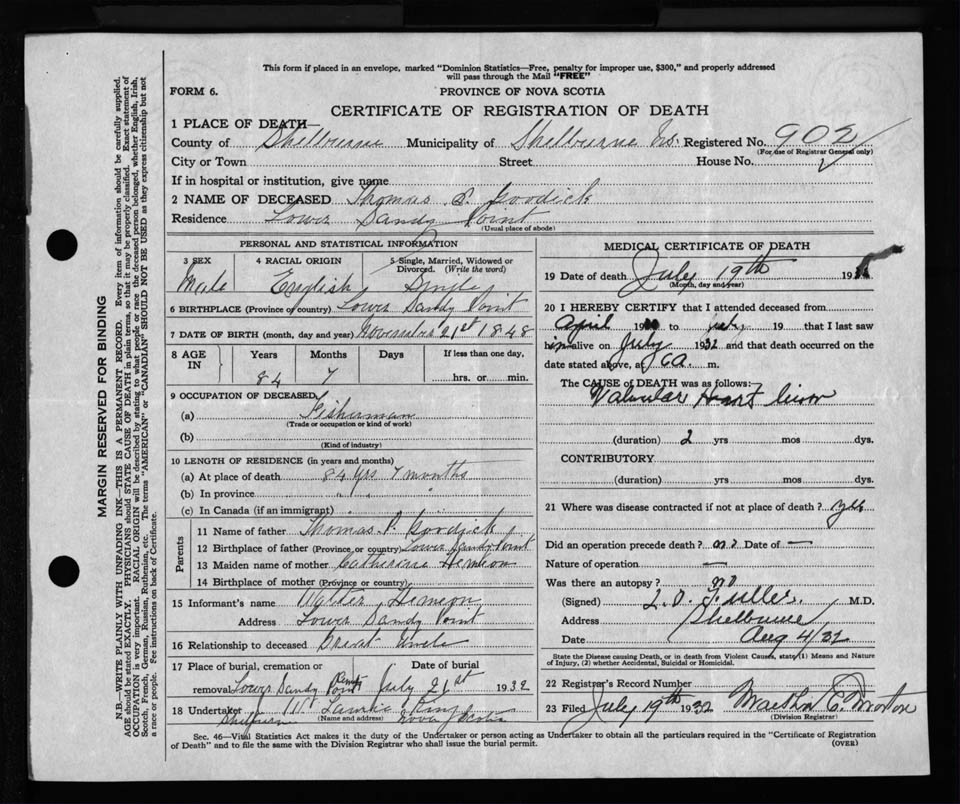 This form if placed in an envelope, marked "Dominion Statistics—Free, penalty for improper use, $300," and properly addressed
will pass through the Mail "FREE"
FORM 6.
PROVINCE OF NOVA SCOTIA
CERTIFICATE OF REGISTRATION OF DEATH
1 PLACE OF DEATH
County of Shelbourne Municipality of Shelbourne Registered No. 902
(For use of Registrar General only)
City or Town Street House No.
If in hospital or institution, give name
2 NAME OF DECEASED Thomas Goodick
Residence Lower Sandy Point
(Usual place of abode)
PERSONAL AND STATISTICAL INFORMATION
3 SEX 4 RACIAL ORIGIN 5 Single, Married, Widowed or
Divorced. (Write the word)
Male English Single
6 BIRTHPLACE (Province or country) Lower Sandy Point
7 DATE OF BIRTH (month, day and year) November 21st 1848
8 AGE IN Years Months Days If less than one day,
84 7 hrs. or min.
9 OCCUPATION OF DECEASED,
(a) Fisherman
(Trade or occupation or kind of work)
(b)
(Kind of industry)
10 LENGTH OF RESIDENCE (in years and months)
(a) At place of death 84 yrs 7 months
(b) In province " " "
(c) In Canada (if an immigrant)
Parents
11 Name of father Thomas P. Goodick
12 Birthplace of father (Province or country) Lower Sandy Point
13 Maiden name of mother Catharine Hemeon
14 Birthplace of mother (Province or country)
15 Informant's name Walter Hemeon
Address Lower Sandy Point
16 Relationship to deceased Great Uncle
17 Place of burial, cremation or Date of burial
removal Lower Sandy Point July 21st 1932
18 Undertaker King
Shelburne (Name and address) Nova Scotia
MEDICAL CERTIFICATE OF DEATH
19 Date of death July 19th 193
(Month, day and year)
20 I HEREBY CERTIFY that I attended deceased from
April 19 to July 19 that I last saw
him alive on July 1932 and that death occurred on the
date stated above, at m.
The CAUSE of DEATH was as follows:
Valvular Heart
(duration) 2 yrs mos dys.
CONTRIBUTORY
(duration) yrs mos dys.
21 Where was disease contracted if not at place of death?
Did an operation precede death? no Date of —
Nature of operation —
Was there an autopsy? no
(Signed) L. O. Fuller. M.D.
Address Shelburne
Date Aug 4/32
State the Disease causing Death, or in death from Violent Causes, state (1) Means and Nature
of Injury, (2) whether Accidental, Suicidal or Homicidal.
22 Registrar's Record Number
23 Filed July 19th 1932 Morton
(Division Registrar)
Sec. 46—Vital Statistics Act makes it the duty of the Undertaker or person acting as Undertaker to obtain all the particulars required in the "Certificate of Registration
of Death" and to file the same with the Division Registrar who shall issue the burial permit. (OVER)
MARGIN RESERVED FOR BINDING
N.B.—WRITE PLAINLY WITH UNFADING INK—THIS IS A PERMANENT RECORD. Every item of information should be carefully supplied.
AGE should be stated EXACTLY. PHYSICIANS should STATE CAUSE OF DEATH in plain terms, so that it may be properly classified. Exact statement of
OCCUPATION is very important. RACIAL ORIGIN will be described by stating to what people or race the deceased person belonged, whether English, Irish,
Scotch, French, German, Russian, Ruthenian, etc. The terms "AMERICAN" or "CANADIAN" SHOULD NOT BE USED as they express citizenship but not
a race or people. See instructions on back of Certificate.